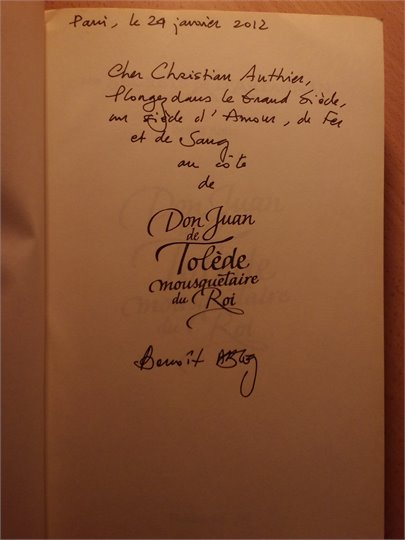 Paris, le 24 janvier 2012
Cher Christian Authier,
Plongez dans le Grand Siècle,
un siècle d'Amour, de Fer
et de Sang
au côté
de
Don Juan
de
Tolède
mousquetaire
du Roi
Benoît